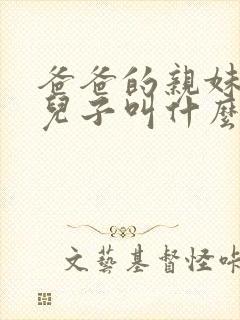 爸爸的親妹
兒子叫什麼
文藝基督怪咔